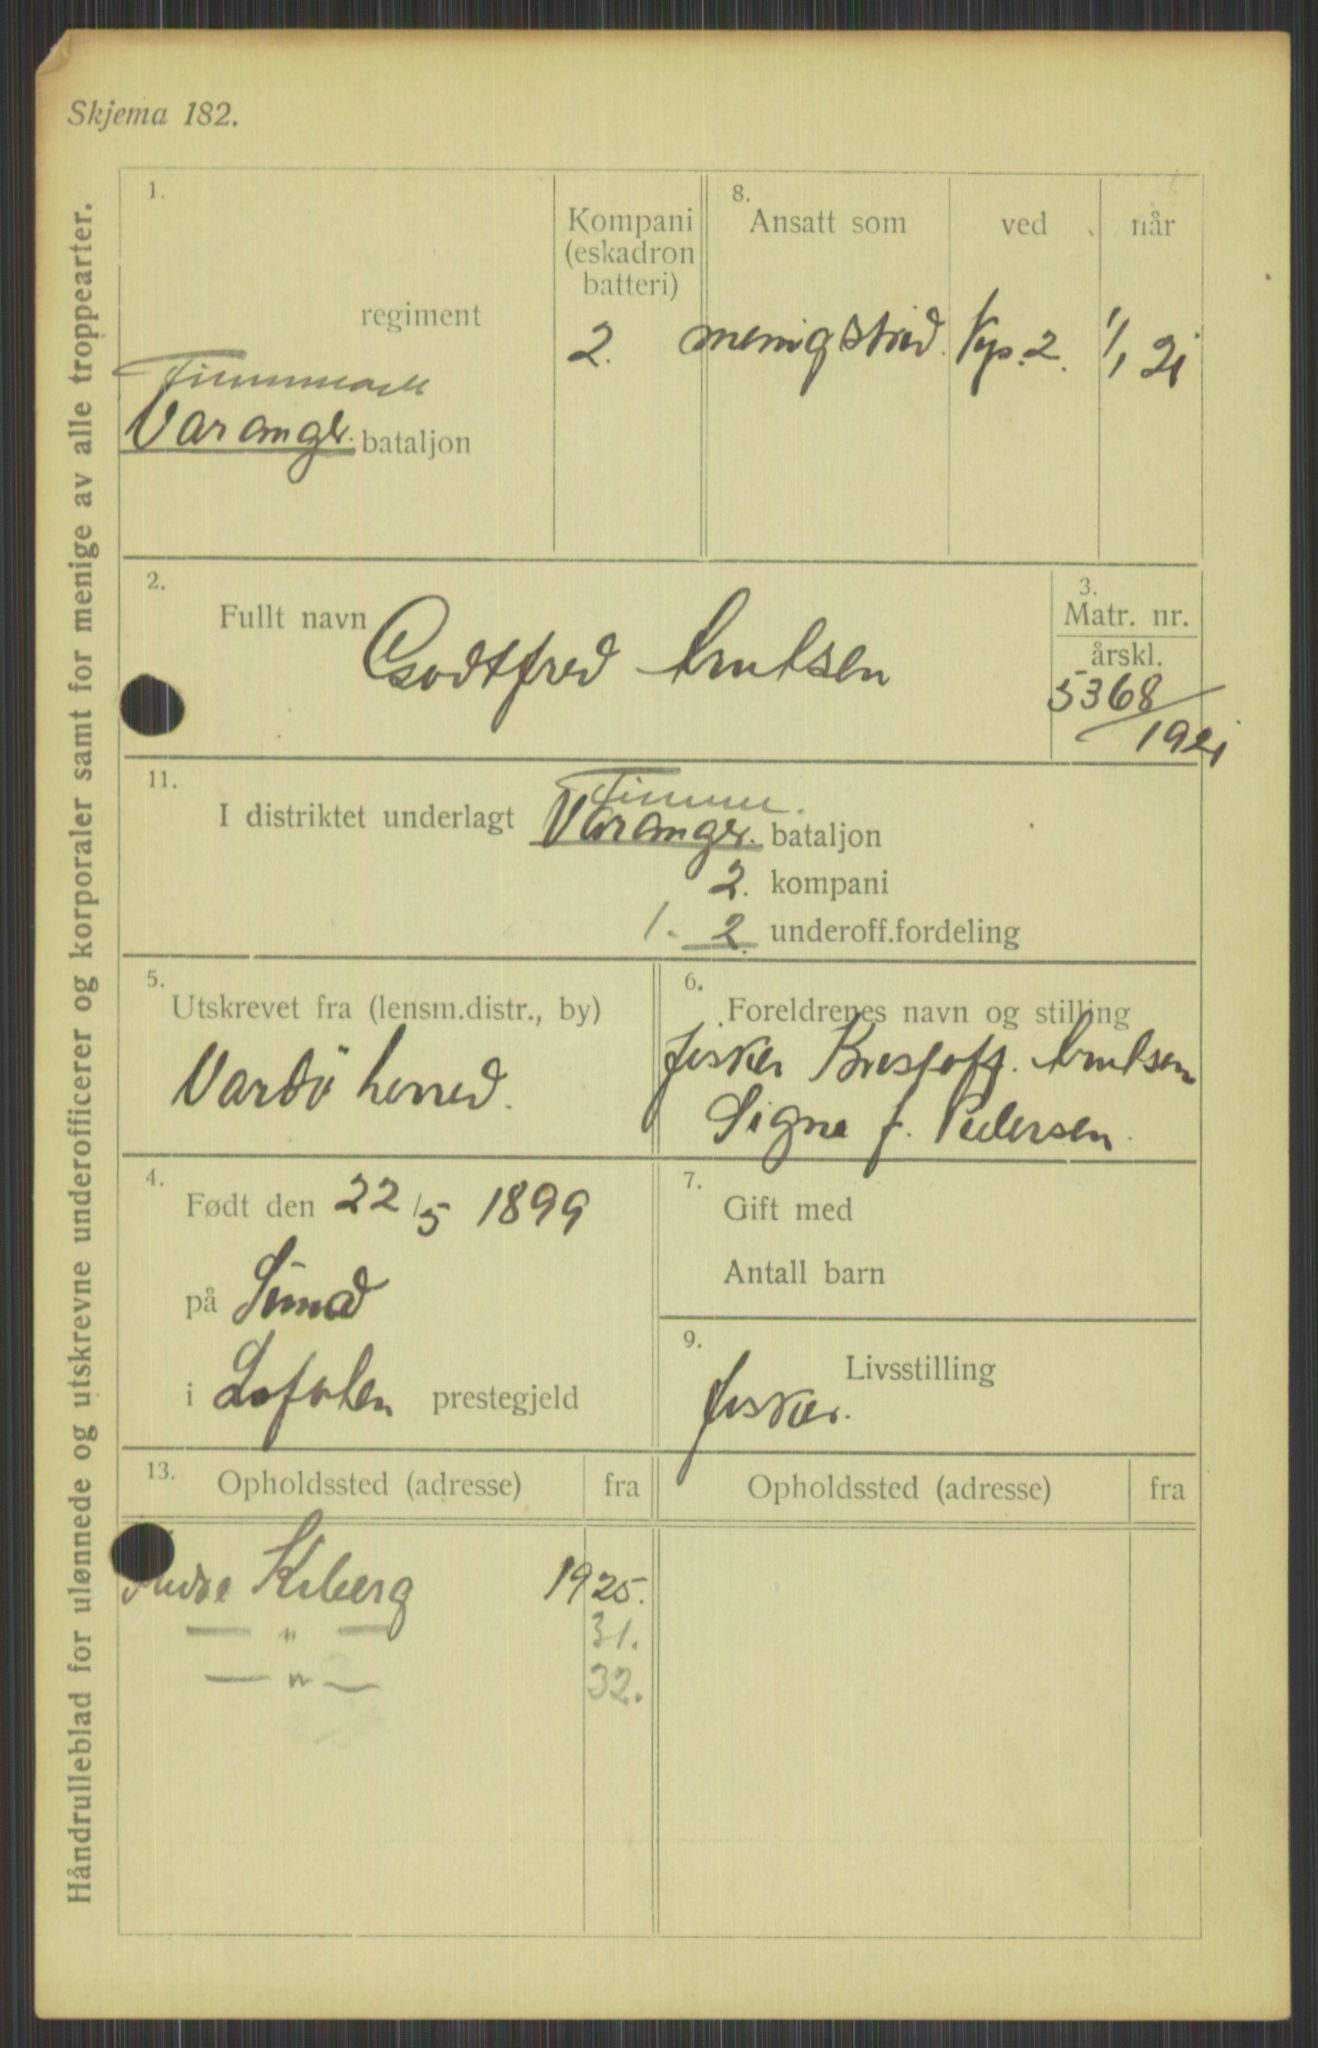 Skjema 182.
Håndrulleblad for ulønnede og utskrevne underofficerer og korporaler samt for menige av alle troppearter.
1.
regiment
Finnmark
Varanger bataljon
Kompani
(eskadron
batteri)
2.
8.
Ansatt som ved når
menig strid. Kp. 2. 1/1 21
2.
Fullt navn Godtfred
3.
Matr. nr.
årskl.
5368
/1921
11.
Finnm.
I distriktet underlagt Varanger. bataljon
2. kompani
1. 2. underoff.fordeling
5.
Utskrevet fra (lensm.distr., by)
Vardö herred.
6.
Foreldrenes navn og stilling
fisker
Signe f. Pedersen.
4.
Født den 22/5 1899
på
i Lofoten prestegjeld
7.
Gift med
Antall barn
9.
Livsstilling
fisker.
13.
Opholdssted (adresse) fra
Opholdssted (adresse) fra
Kiberg 1925.
— " — 31.
— " — 32.